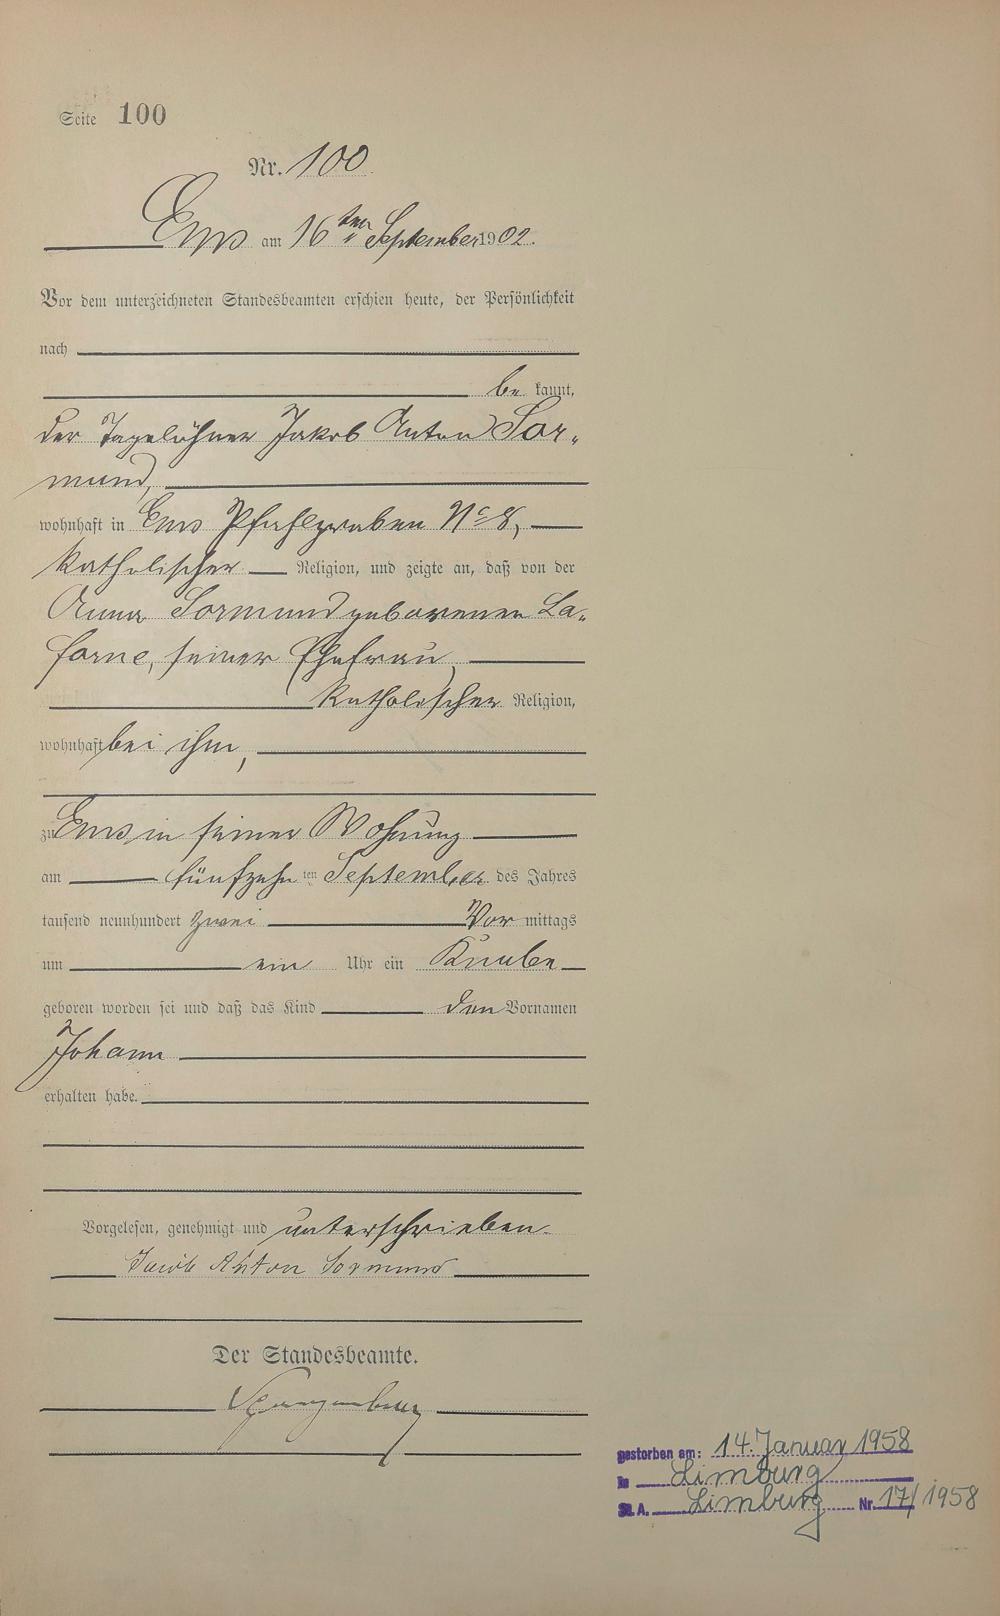 Seite 100
Nr. 100
Ems am 16ten September 1902.
Vor dem unterzeichneten Standesbeamten erschien heute, der Persönlichkeit
nach
be kannt,
der Tagelöhner Jakob Anton Sor-
mund,
wohnhaft in Ems Pfahlgraben No 8,
katholischer Religion, und zeigte an, daß von der
Anna Sormund geborenen La-
forne, seiner Ehefrau,
katholischer Religion,
wohnhaft bei ihm,
zu Ems in seiner Wohnung
am fünfzehn ten September des Jahres
tausend neunhundert zwei Vor mittags
um ein Uhr ein Knabe
geboren worden sei und daß das Kind den Vornamen
Johann
erhalten habe.
Vorgelesen, genehmigt und unterschrieben.
Jacob Anton Sormund
Der Standesbeamte.
gestorben am: 14. Januar 1958
in Limburg
St. A. Limburg Nr. 17/1958